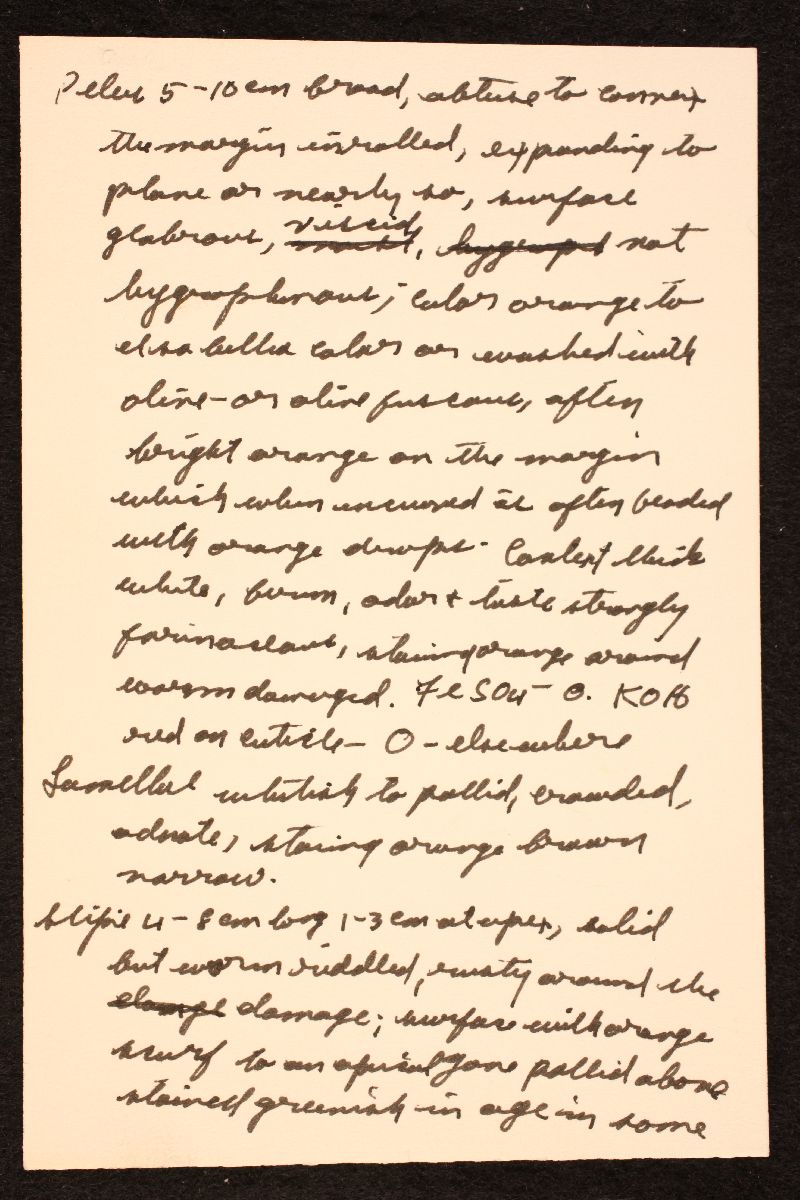 Pileus 5-10 cm broad, obtuse to convex
the margin inrolled, expanding to
plane or nearly so, surface
glabrous, viscid, not
hygrophanous; color orange to
color or washed with
olive- or olive fuscous, often
bright orange on the margin
which when incurved is often beaded
with orange drops. Context thick
white, firm, odor & taste strongly
farinaceous, staining orange around
worm damaged. FeSO4 - O. KOH
red on cuticle - O - elsewhere
Lamellae whitish to pallid, crowded,
adnate, staining orange brown
narrow.
Stipe 4-8 cm long 1-3 cm at apex, solid
but worm riddled, rusty around the
damage; surface with orange
scurf to an apical zone pallid above
stained greenish in age in some